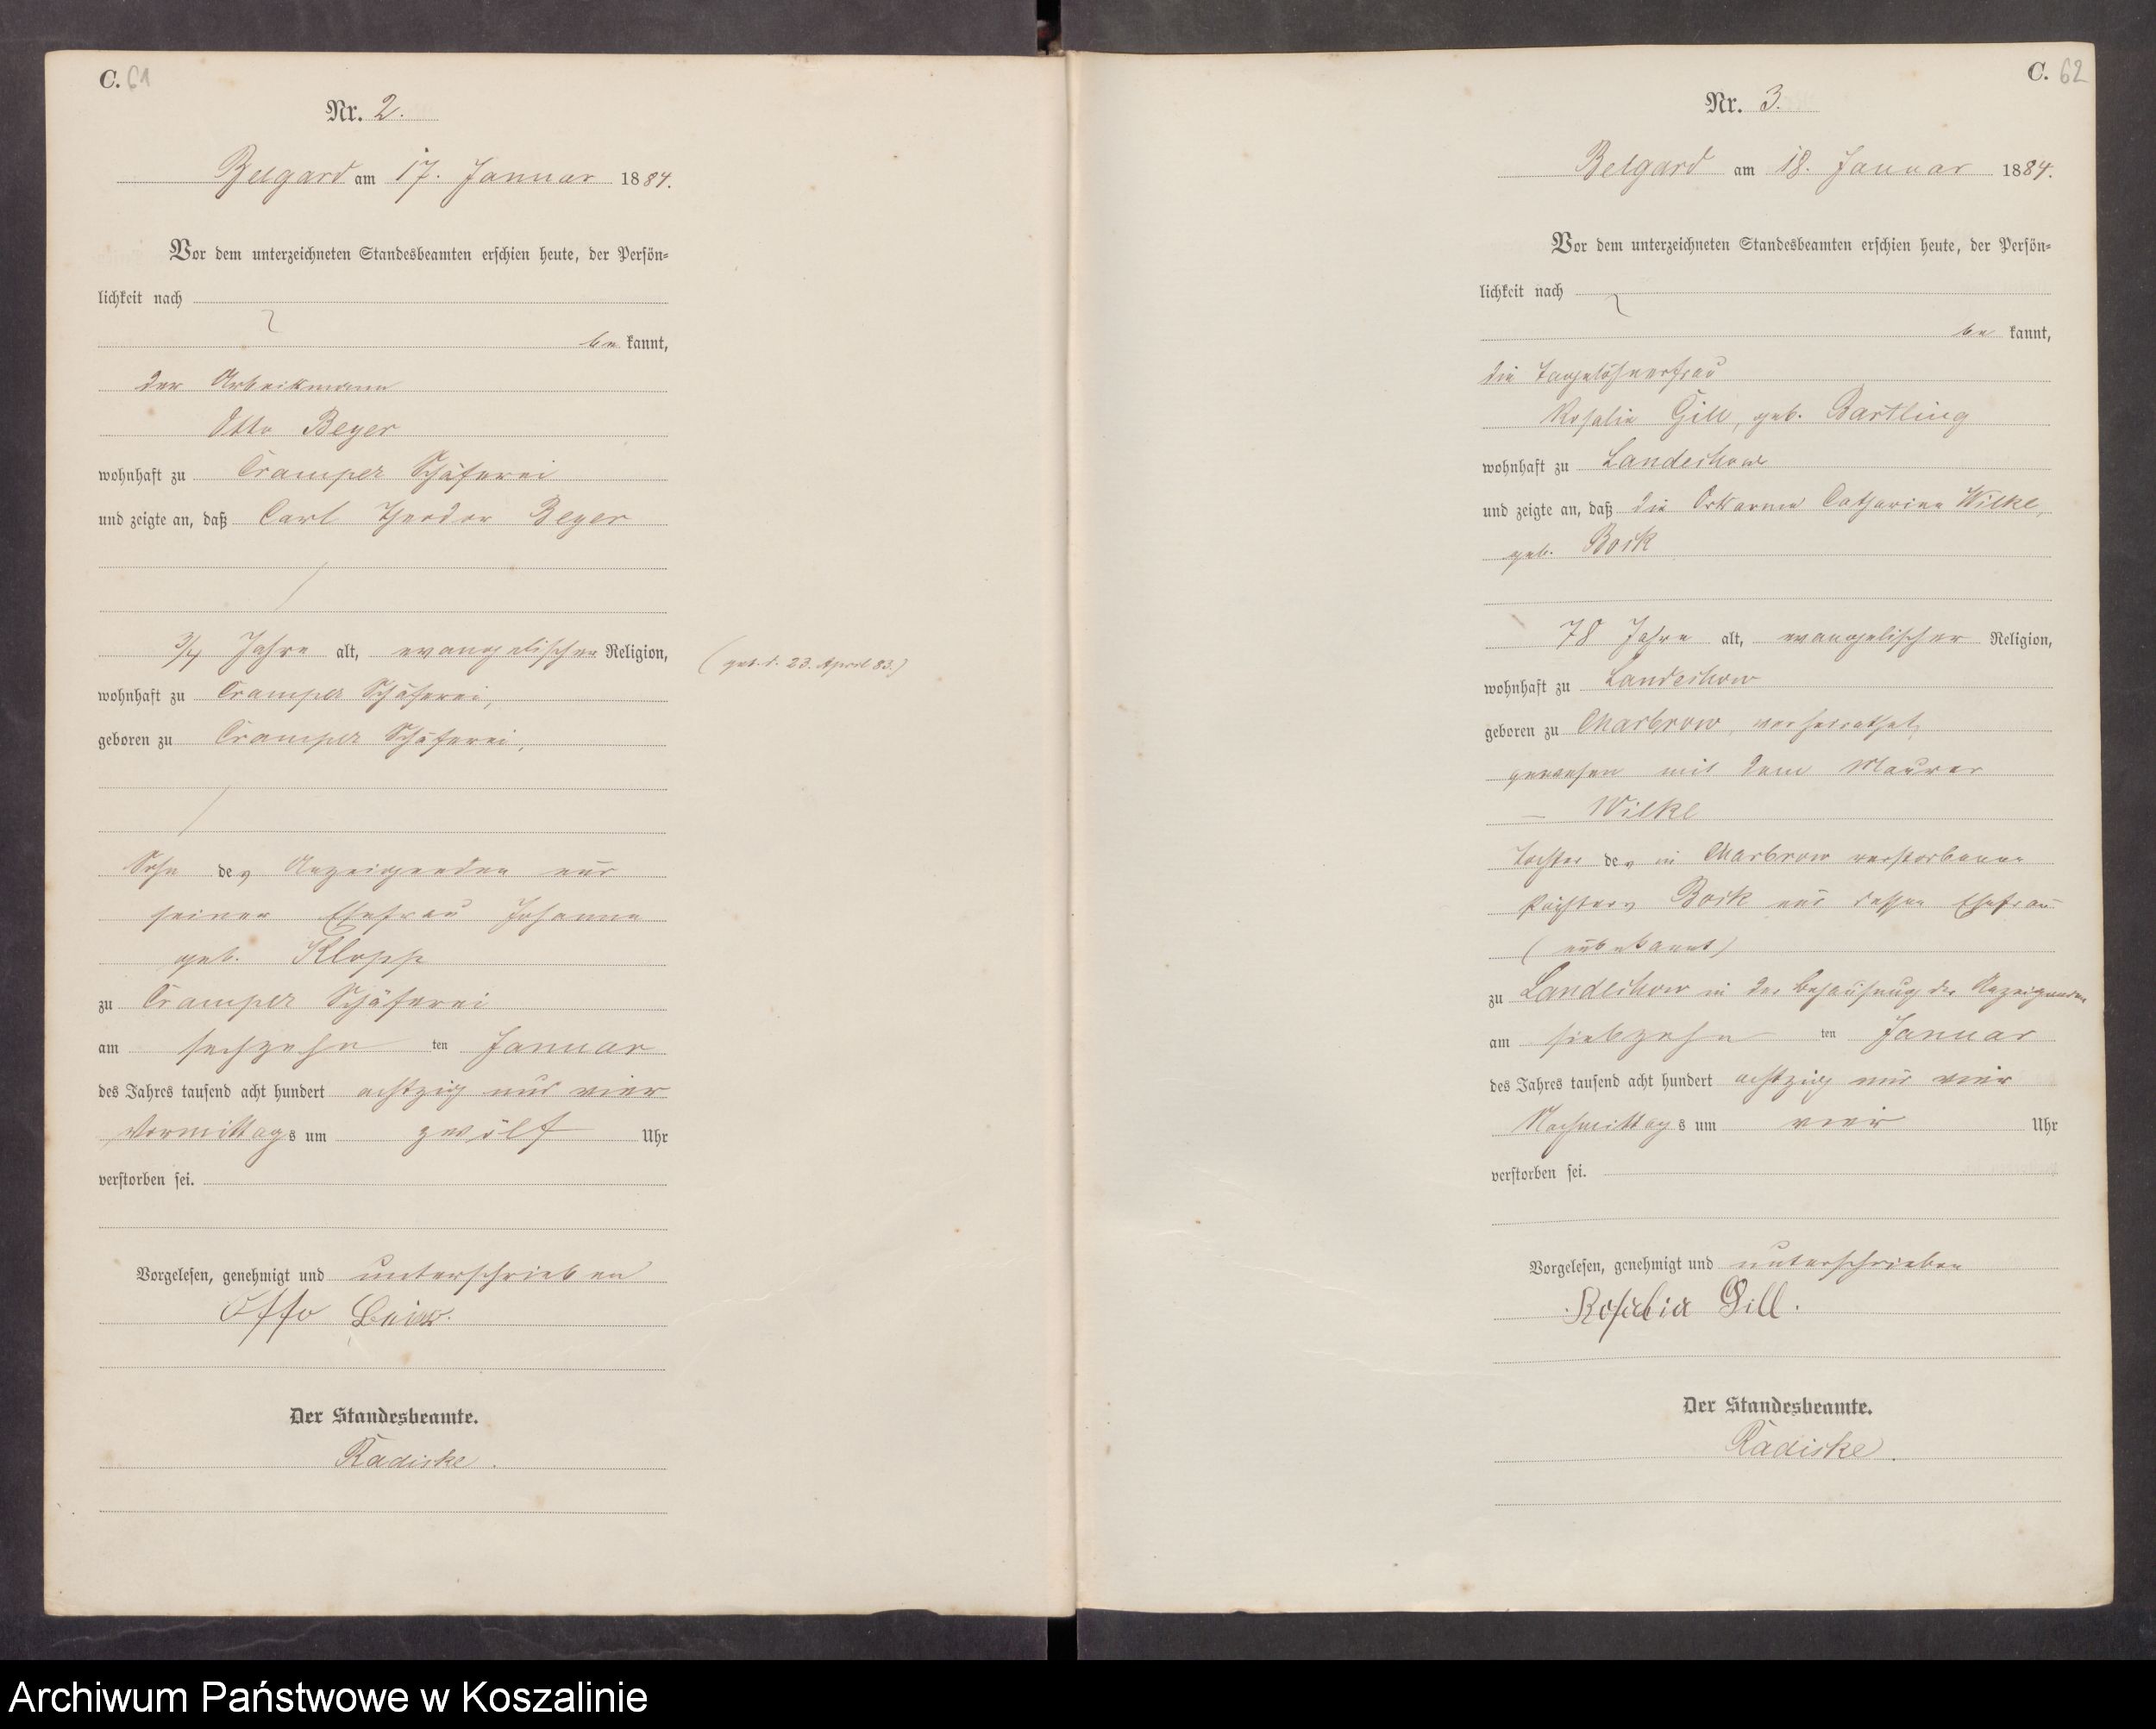 C. 61
Nr. 2.
Belgard am 17. Januar 1884.
Vor dem unterzeichneten Standesbeamten erschien heute, der Persön-
lichkeit nach
be kannt,
der Arbeitsmann
Otto Beyer
wohnhaft zu Cramper Schäferei
und zeigte an, daß Carl Theodor Beyer
3/4 Jahre alt, evangelischer Religion,
(geb. d. 23. April 83.)
wohnhaft zu Cramper Schäferei,
geboren zu Cramper Schäferei,
Sohn des Anzeigenden und
seiner Ehefrau Johanna
geb. Klopp
zu Cramper Schäferei
am sechzehn ten Januar
des Jahres tausend acht hundert achtzig und vier
Vormittags um zwölf Uhr
verstorben sei.
Vorgelesen, genehmigt und unterschrieben
Otto
Der Standesbeamte.
Radiske.
C. 62
Nr. 3.
Belgard am 18. Januar 1884.
Vor dem unterzeichneten Standesbeamten erschien heute, der Persön-
lichkeit nach
be kannt,
die Tagelöhnerfrau
Rosalie Gill, geb. Bartling
wohnhaft zu Landechow
und zeigte an, daß die Ortsarme Catharine Wilke,
geb. Bock
78 Jahre alt, evangelischer Religion,
wohnhaft zu Landechow
geboren zu Charbrow, verheirathet
gewesen mit dem Maurer
— Wilke
Tochter des in Charbrow verstorbenen
Pächters Bock und dessen Ehefrau
(unbekannt)
zu Landechow in der Behausung der Anzeigenden
am siebzehn ten Januar
des Jahres tausend acht hundert achtzig und vier
Nachmittags um vier Uhr
verstorben sei.
Vorgelesen, genehmigt und unterschrieben
Rosalia Gill.
Der Standesbeamte.
Radiske.
Archiwum Państwowe w Koszalinie